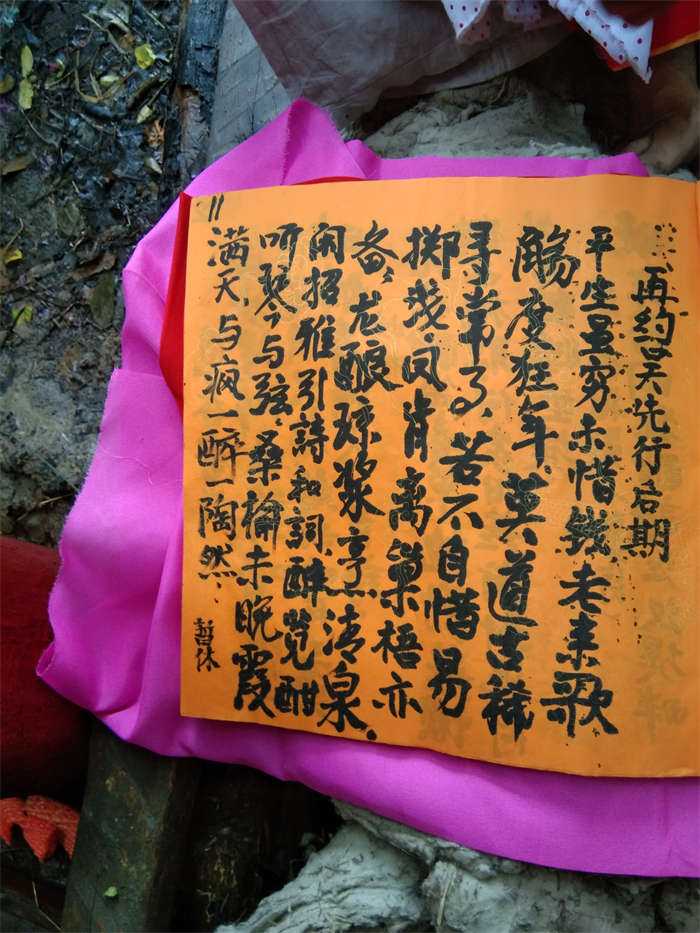 再约吴先行后期
平生虽穷未惜钱老来歌
觞度狂年.莫道古稀
寻常了.若不自惜易
掷.凤肯离巢梧亦
备,龙酿琼浆烹清泉.
闲招雅引詩和詞.醉酣
听琴与弦.桑榆未晚霞
11
满天.与疯一醉一陶然.
暂休